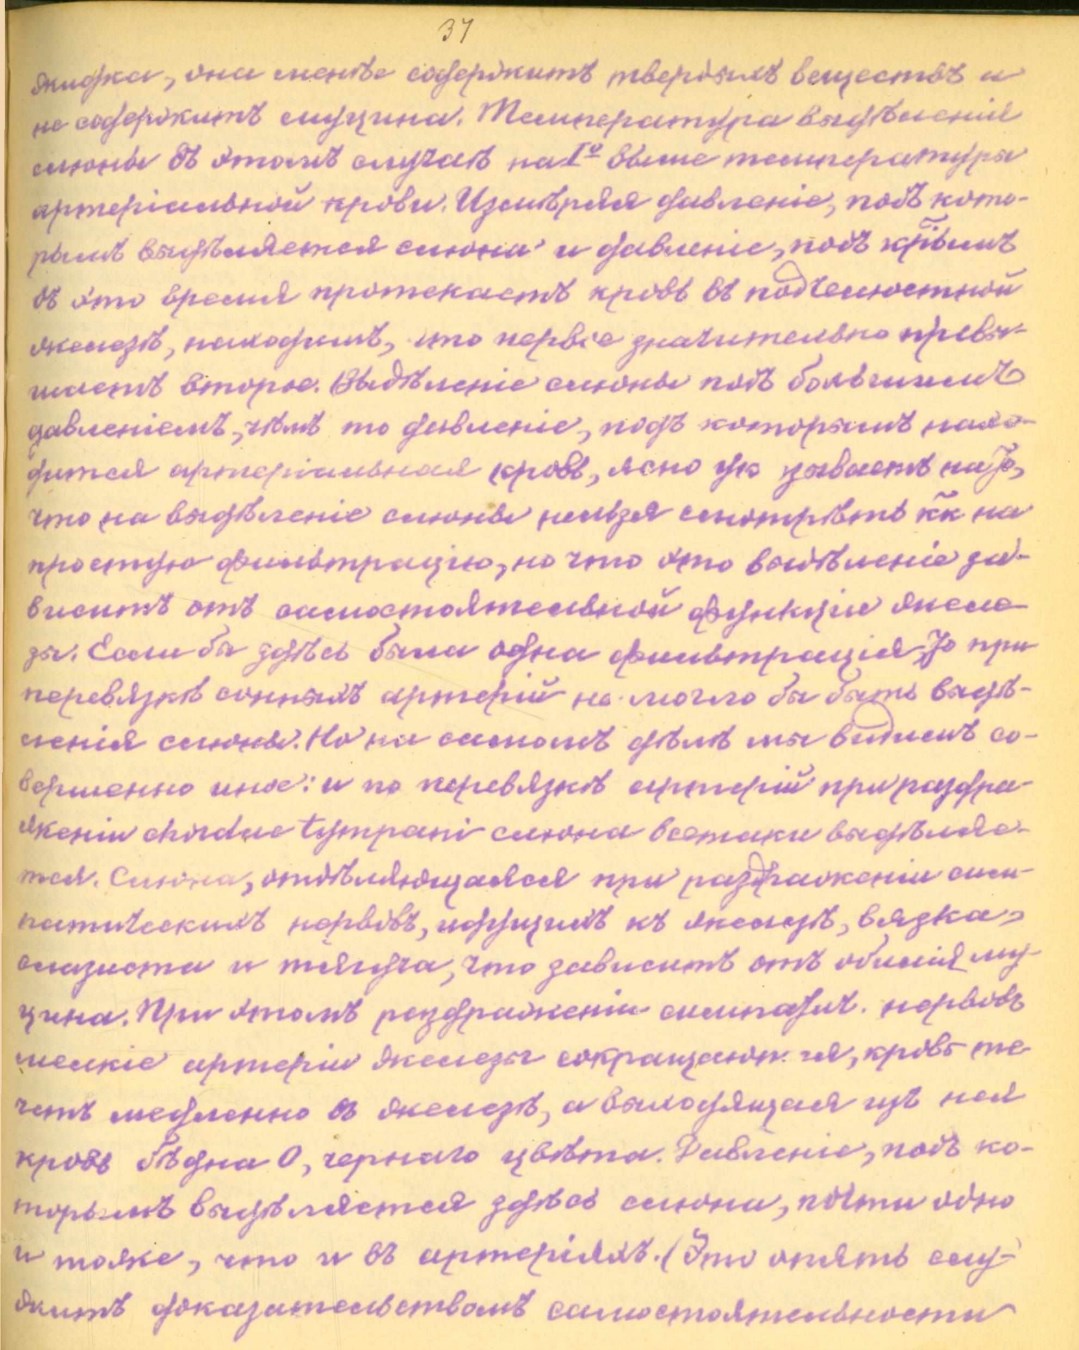 37
жидка, она менѣе содержитъ твердыхъ веществъ и
не содержитъ муцина. Температура выдѣленія
слюны въ этомъ случаѣ на 1° выше температуры
артеріальной крови. Измѣряя давленіе, подъ кото-
рымъ выдѣляется слюна и давленіе, подъ кр̅ымъ
въ это время протекаетъ кровь въ подчелюстной
железѣ, находимъ, что первое значительно превы-
шаетъ второе. Выдѣленіе слюны подъ большимъ
давленіемъ, чѣмъ то давленіе, подъ которымъ нахо-
дится артеріальная кровь, ясно ук зываетъ на то,
что на выдѣленіе слюны нельзя смотрѣть к̅к на
простую фильтрацію, но что это выдѣленіе за-
виситъ отъ самостоятельной функціи желе-
зы. Если бы здѣсь была одна фильтрація, то при
перевязкѣ сонныхъ артерій не могло бы быть выдѣ-
ленія слюны. Но на самомъ дѣлѣ мы видимъ со-
вершенно иное: и по перевязкѣ артерій при раздра-
женіи chordae tympani слюна всетаки выдѣляе-
тся. Слюна, отдѣляющаяся при раздраженіи сим-
патическихъ нервовъ, идущихъ къ железѣ, вязка,
слизиста и тягуча, что зависитъ отъ обилія му-
цина. При этомъ раздраженіи симпатич. нервовъ
мелкіе артеріи железы сокращают ся, кровь те-
четъ медленно въ железѣ, а выходящая изъ нея
кровь бѣдна О, чернаго цвѣта. Давленіе, подъ ко-
торымъ выдѣляется здѣсь слюна, почти одно
и тоже, что и въ артеріяхъ. (Это опять слу-
житъ доказательствомъ самостоятельности